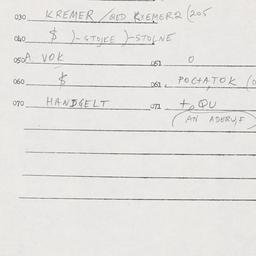 030 KREMER / KREMER2 (205
040 $ )-STOJKE )-STOLNE
050 A VOK 051 0
060 $ 061 POČIATOK
070 HANDGELT 071 + QU
(AN